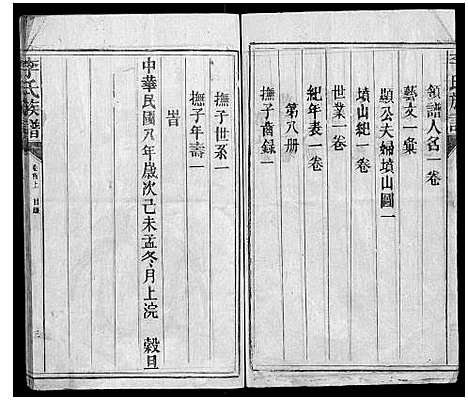 李氏族譜
領譜人名一卷
藝文一彙
顯公夫婦墳山圖一
墳山紀一卷
世業一卷
紀年表一卷
第八册
撫子齒錄一
撫子世系一
撫子年壽一
旹
中華民國八年歲次己未孟冬月上浣 穀旦
李氏族譜
卷首上 目錄
三